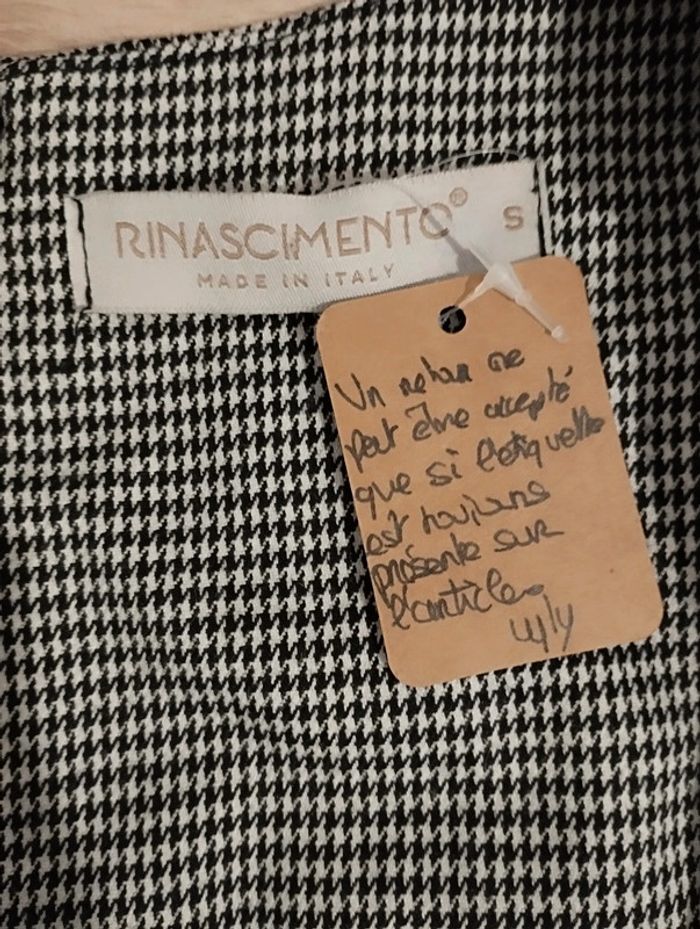 RINASCIMENTO® S
MADE IN ITALY
Un retour ne
peut être accepté
que si l'étiquette
est toujours
présente sur
l'article.